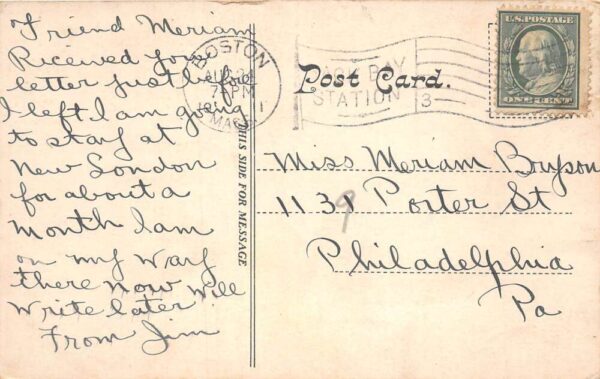 Friend Meriam
Received your
letter just before
I left I am going
to stay at
New London
for about a
month I am
on my way
there now will
write later
From Jim
THIS SIDE FOR MESSAGE
BOSTON
MASS
BACK BAY
STATION
3
Post Card.
U.S. POSTAGE
ONE CENT
Miss Meriam Bryson
1139 Porter St
Philadelphia
Pa